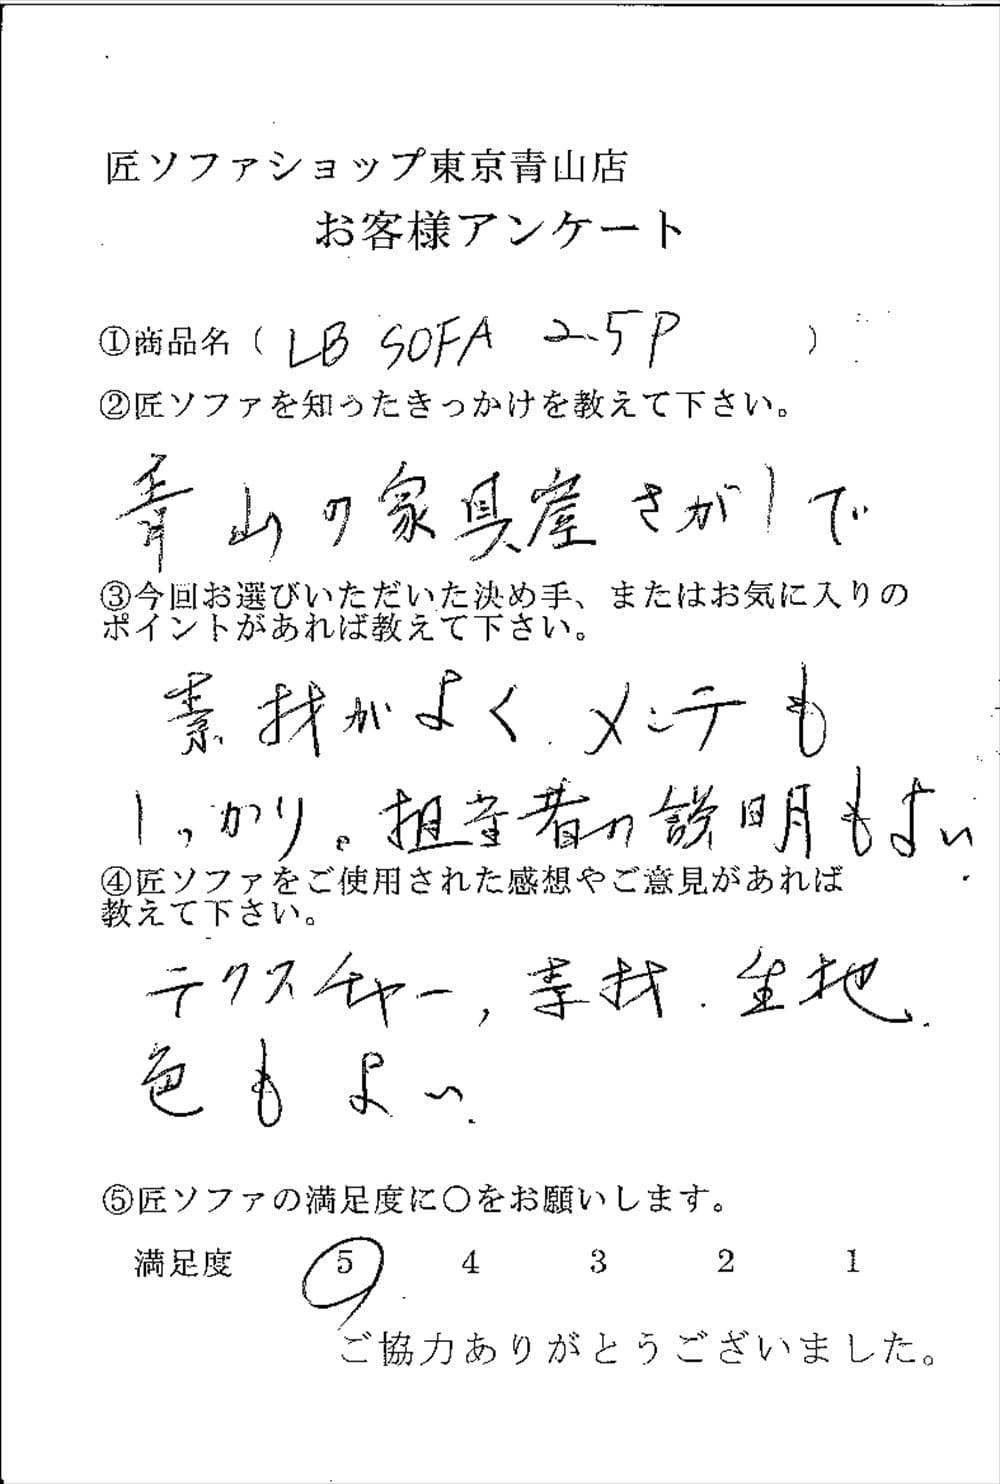 匠ソファショップ東京青山店
お客様アンケート
①商品名（ LB SOFA 2.5P ）
②匠ソファを知ったきっかけを教えて下さい。
青山の家具屋さがしで
③今回お選びいただいた決め手、またはお気に入りの
ポイントがあれば教えて下さい。
素材がよく、メンテも
しっかり。担当者の説明もよい
④匠ソファをご使用された感想やご意見があれば
教えて下さい。
テクスチャー、素材、生地、
色もよい。
⑤匠ソファの満足度に〇をお願いします。
満足度 5 4 3 2 1
ご協力ありがとうございました。